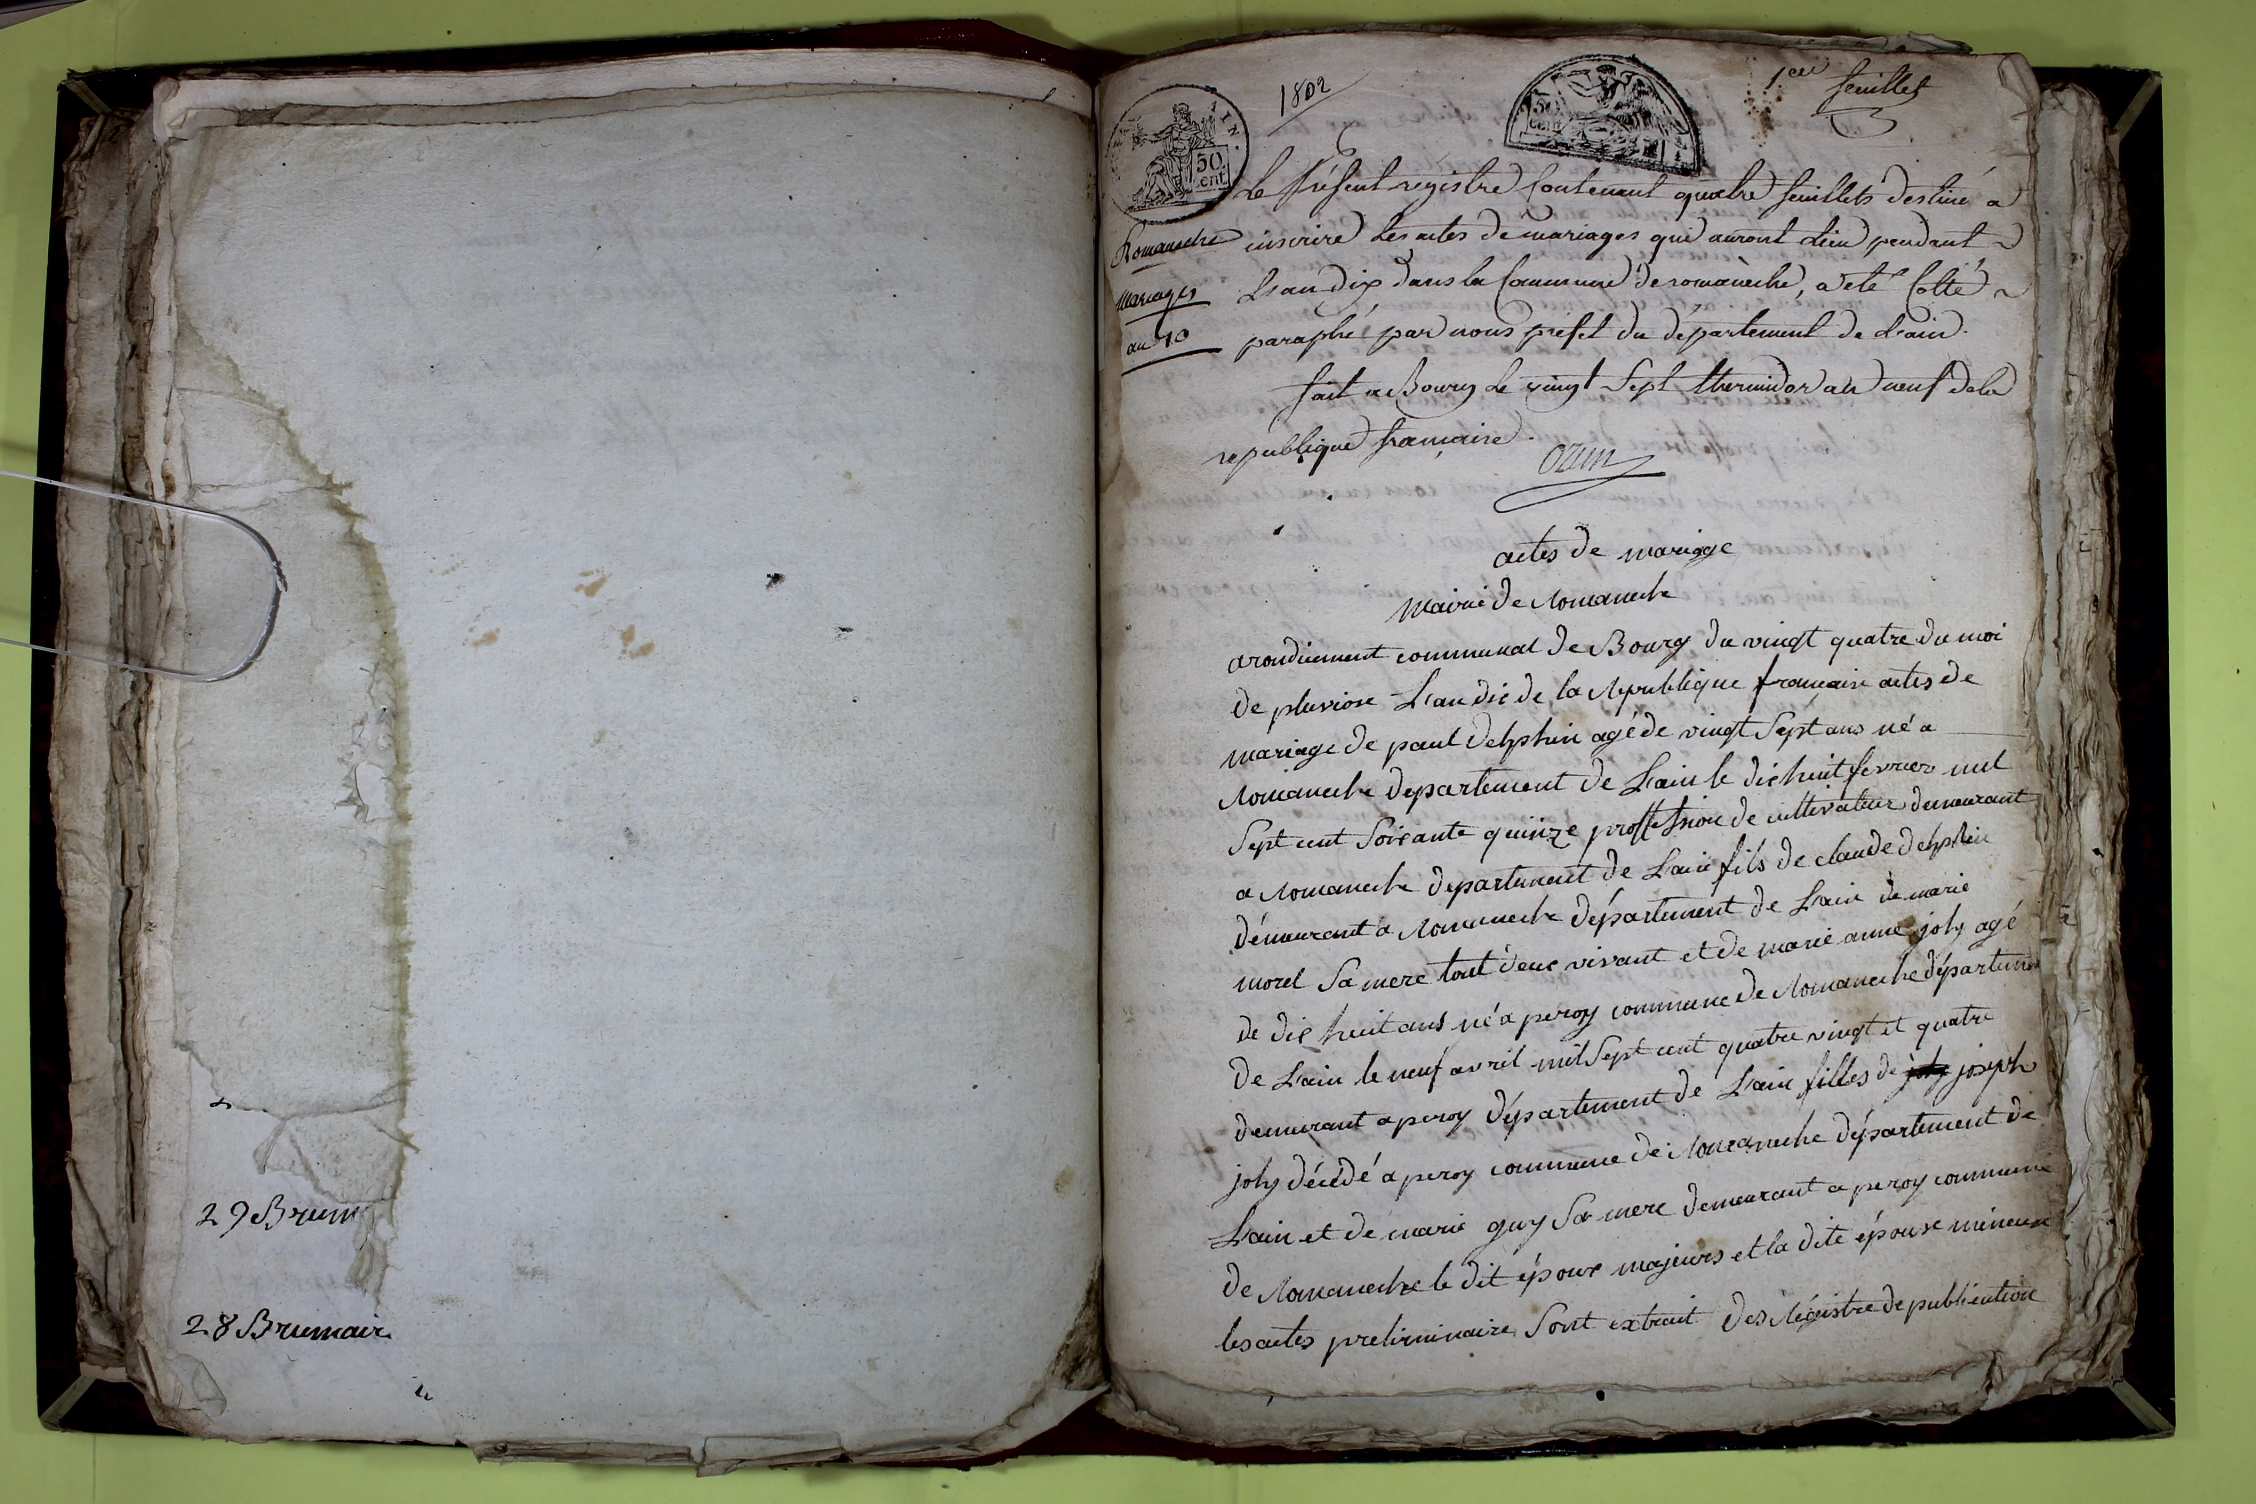 29 Brum
28 Brumair
1802
1er feuillet
50 cent
50 cent
Romaneche
Mariages
an 10
Le présent registre Contenant quatre feuillets destiné a
inscrire Les actes de mariages qui auront Lieu pendant
L'an Dix dans la Commune de romanèche, a eté Cotté
paraphé par nous préfet du département de L'ain.
fait a Bourg Le vingt Sept thermidor an neuf de la
republique francaise.
ozun
actes de mariage
Mairie de Romaneche
arondicement communal de Bourg du vingt quatre du moi
de pluviose L'an dix de la Republique francaise actes de
mariage de paul Delphin agé de vingt Sept ans né a
Romaneche Departement de L'ain le dix huit fevrier mil
Sept cent Soixante quinze proffession de cultivateur demeurant
a Romaneche departement de L'ain fils de claude Delphin
démeurant a Romaneche département de L'ain de marie
morel Sa mere tout deux vivant et de marie anne joly agé
de dix huit ans né a peroy commune de Romaneche départemen
de L'ain le neuf avril mil Sept cent quatre vingt et quatre
demeurant a peroy département de L'ain filles de joly joseph
joly décédé a peroy commune de Romaneche département de
L'ain et de marie guy Sa mere demeurant a peroy commune
de Romaneche le dit époux majeurs et la dite épouse mineure
les actes preliminaire Sont extrait des Régistre de publication